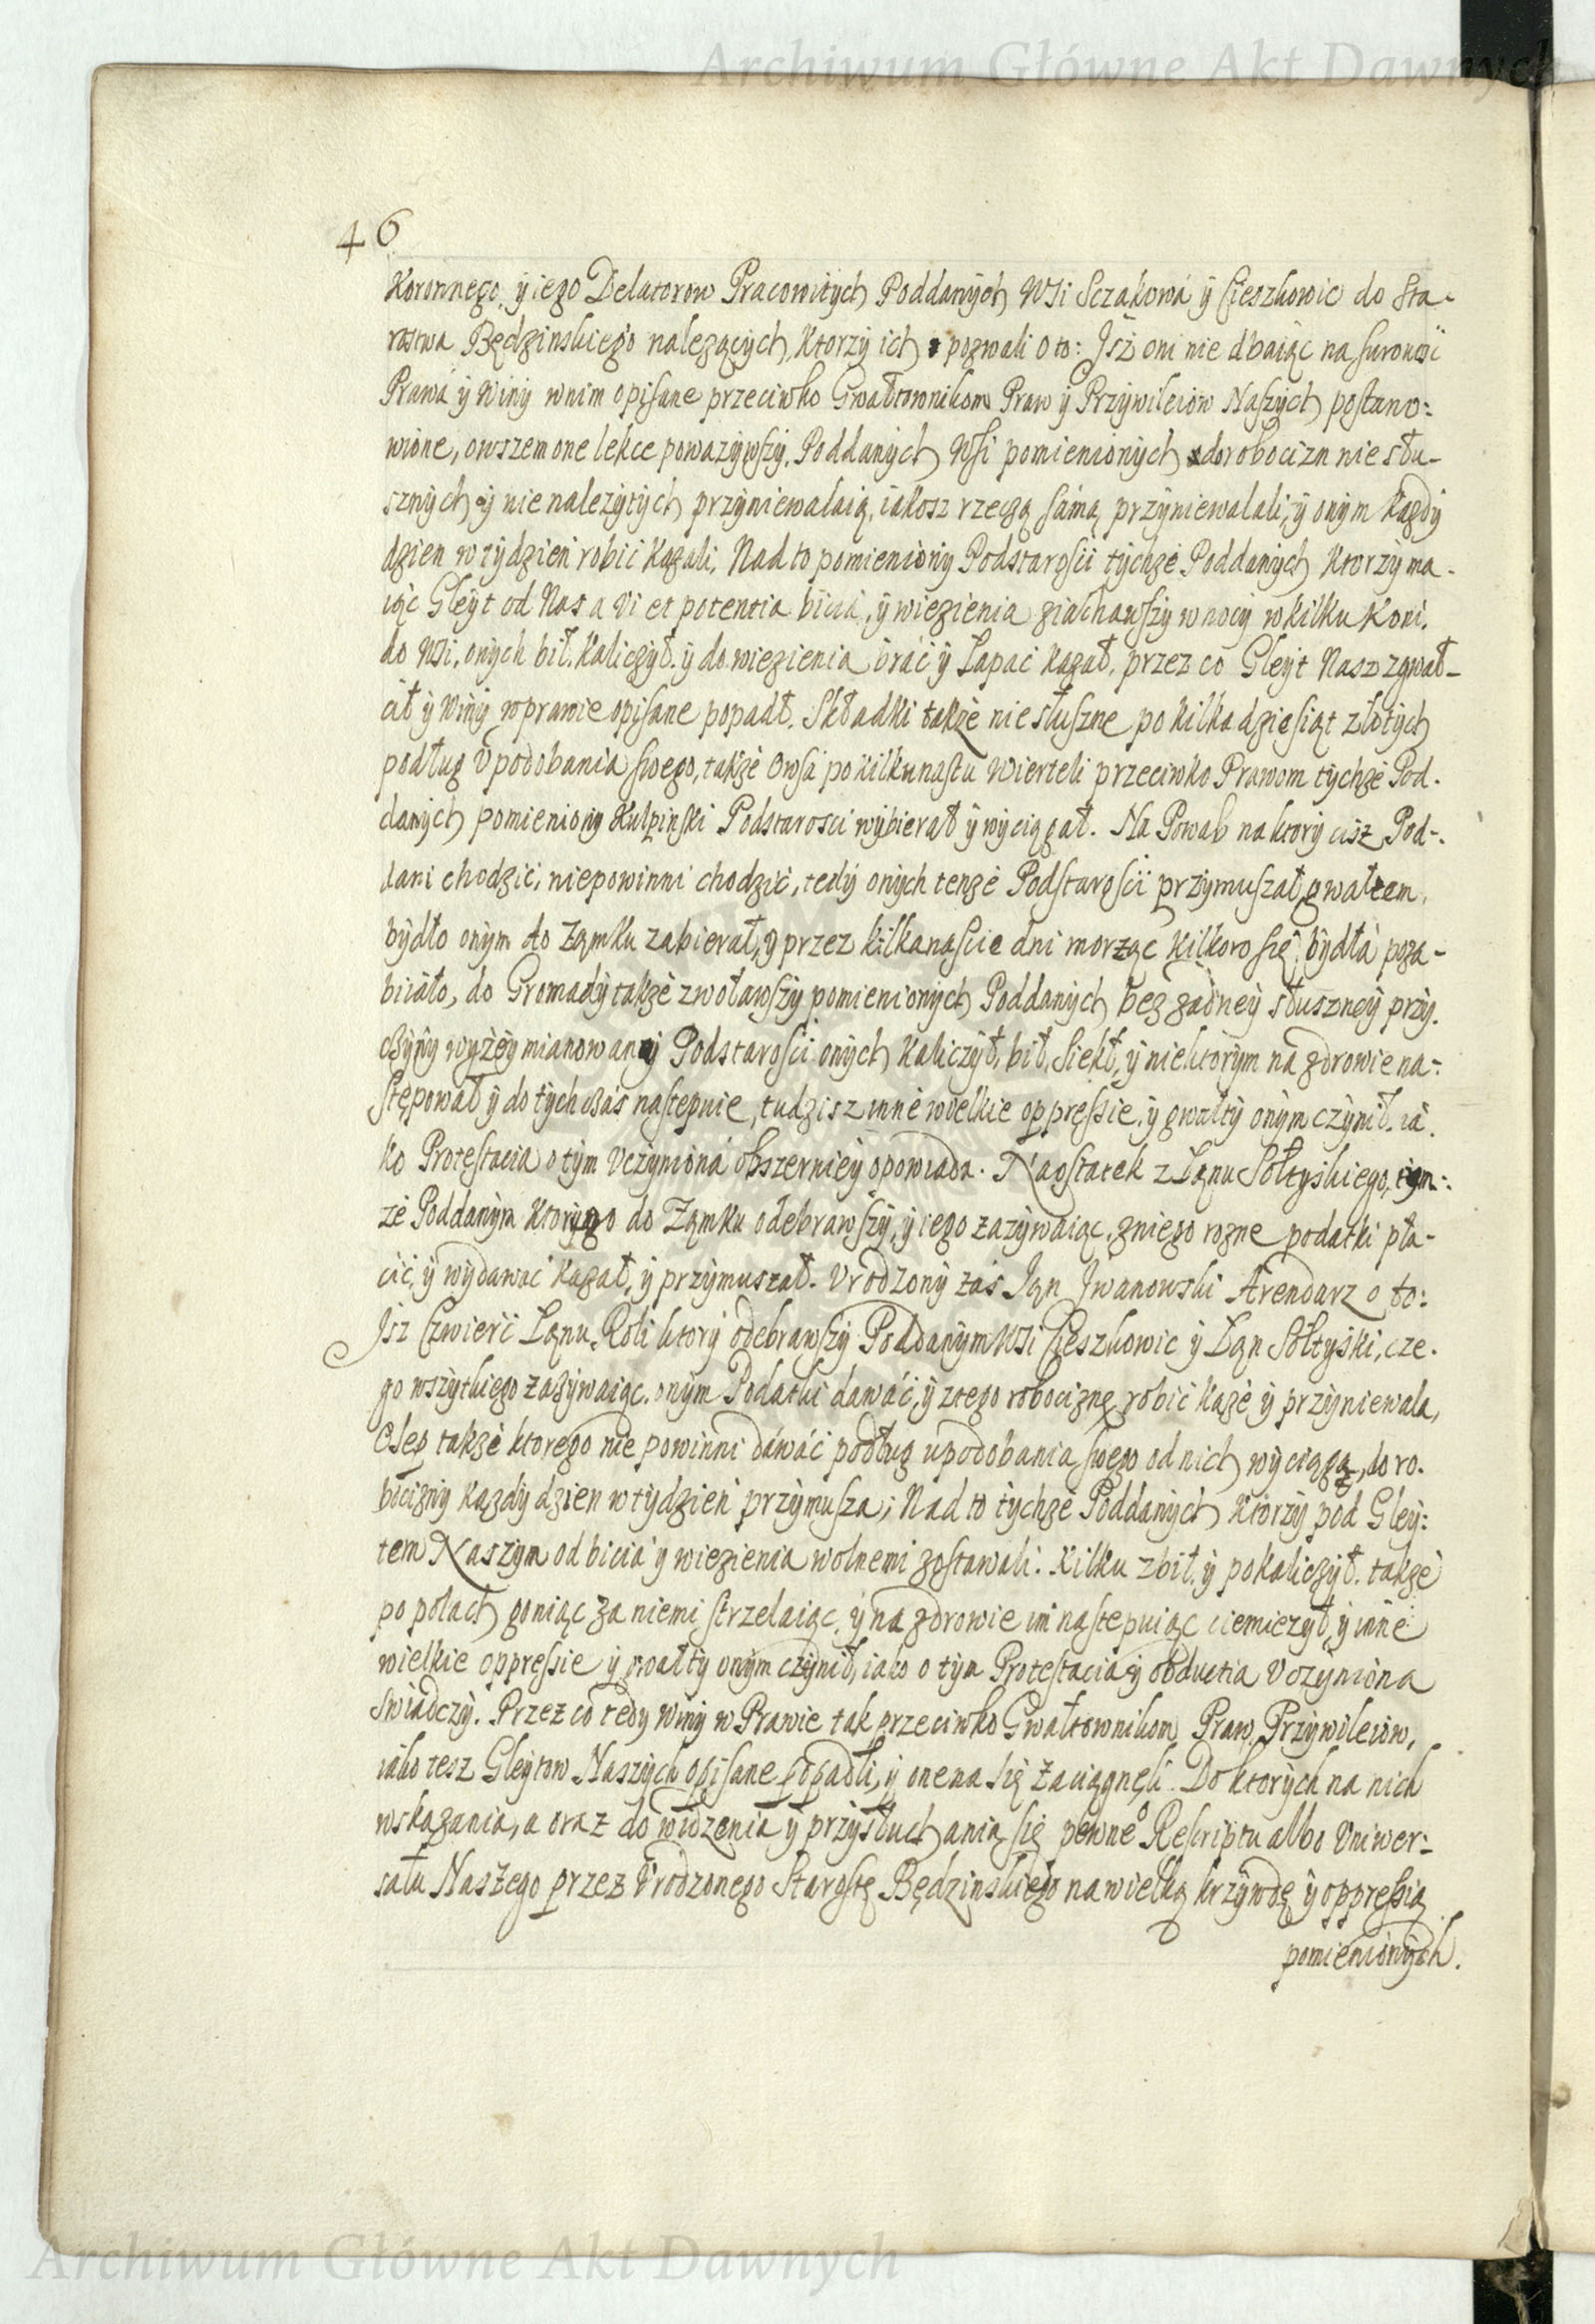 Archiwum Główne Akt Dawnych
46
Koronnego, y iego Delatorow Pracowitych Poddanych Wsi Sczakowá y Cieszkowic do Sta-
rostwa Będzinskiego nalezących, ktorzy ich pozwali o to: Isz oni nie dbaiąc na surowosc
Prawa y Winy wnim opisane przeciwko Gwałtownikom Praw y Przywileiow Naszych postano:
wione, owszem one lekce powazywszy, Poddanych Wsi pomienionych do robocizn nie słu-
sznych y nie nalezytych przyniewalaią, iakosz rzeczą samą przyniewalali, y onym kazdy
dzien w tydzien robić kazali, Nad to pomieniony Podstarosci tychze Poddanych ktorzy ma-
iąc Gleyt od Nas a vi et potentia bicia, y wiezienia ziachawszy w nocy w kilku koni.
do Wsi, onych bił, kaliczył, y do wiezienia brać y łapać kazał, przez co Gleyt Nasz zgwał-
cił y Winy w prawie opisane popadł. Składki takze nie słuszne po kilka dziesiąt złotych
podług Vpodobania swego, takze Owsa po kilkunastu Wierteli przeciwko Prawom tychze Pod-
danych pomieniony Kulpinski Podstarosci wybierał y wyciągał. Na Powab na ktory cisz Pod-
dani chodzić, niepowinni chodzić, tedy onych tenze Podstarosci przymuszał, gwałtem,
bydło onym do Zamku zabierał, y przez kilkanascie dni morząc kilkoro się bydła poza-
biiało, do Gromady takze zwoławszy pomienionych Poddanych bez zadney słuszney przy-
czyny wyzey mianowany Podstarosci onych kaliczył, bił, siekł, y niektorym na zdrowie na-
stępował y do tych czas nastepuie, tudzisz inne wielkie oppressie, y gwałty onym czynił, ia-
ko Protestacia o tym Vczyniona obszerniey opowiada. Naostatek z Łanu Sołtyskiego, tym-
ze Poddanym ktorygo do Zamku odebrawszy, y iego zazywaiąc, zniego rozne podatki pła-
cić, y wydawać kazał, y przymuszał. Vrodzony zas Ian Iwanowski Arendarz o to:
Isz czwierć Łanu Roli ktory odebrawszy Poddanym Wsi Cieszkowic y Łan Sołtyski, cze-
go wszytkiego zazywaiąc, onym Podatki dawać, y ztego robociznę robić kaze y przyniewala,
Osep takze ktorego nie powinni dawać podług upodobania swego od nich wyciąga, do ro-
bocizny kazdy dzien w tydzien przymusza; Nad to tychze Poddanych ktorzy pod Gley:
tem Naszym od bicia y wiezienia wolnemi zostawali. Kilku zbił, y pokaliczył, takze
po polach goniąc za niemi, strzelaiąc, y na zdrowie im nastepuiąc ciemiezył, y inne
wielkie oppressie y gwałty onym czynił, iako o tym Protestacia y obductia Vczyniona
swiadczy. Przez co tedy Winy w Prawie tak przeciwko Gwałtownikom Praw, Przywileiow,
iako tesz Gleytow Naszych opisane popadli, y one na się zaciągnęli. Do ktorych na nich
wskazania, a oraz do widzenia y przysłuchania się pewneo Rescriptu albo Vniwer:
sału Naszego przez Vrodzonego Starostę Będzinskiego na wielką krzywdę y oppressią
pomienionych.
Archiwum Główne Akt Dawnych